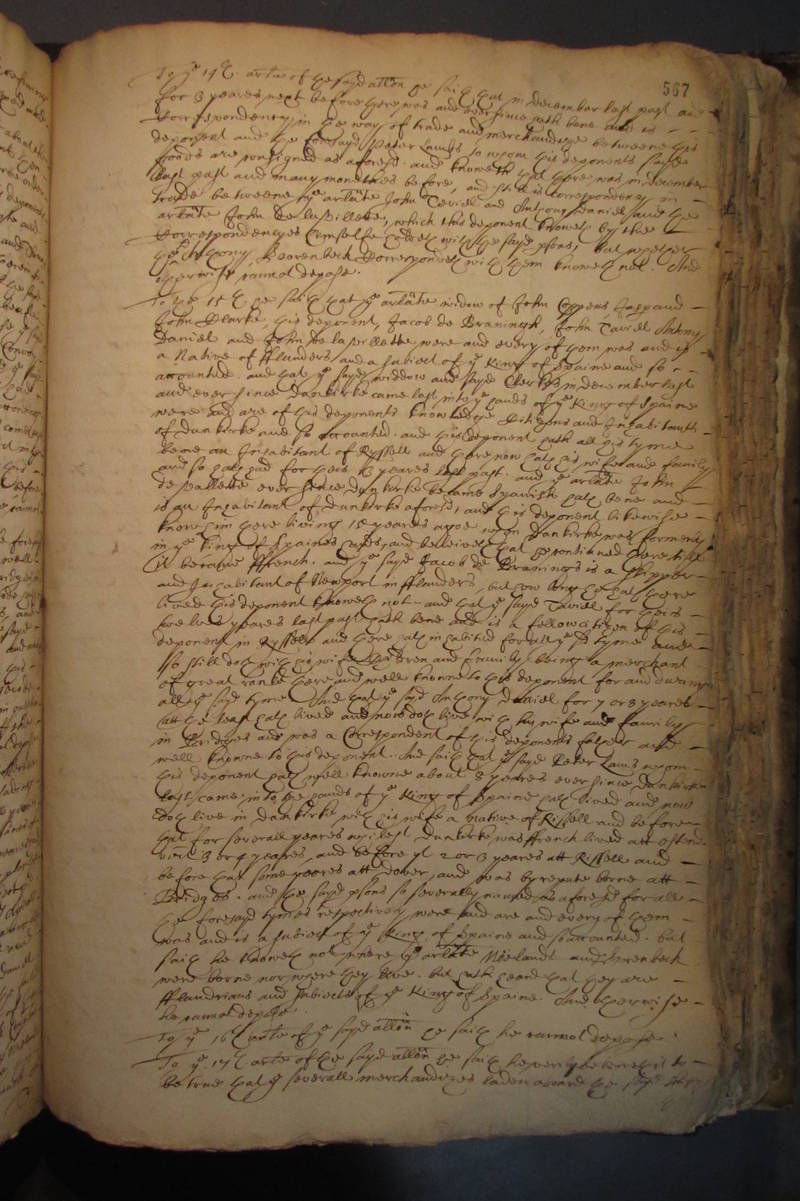 567
To ye 14th artle of the sayd allon he saith that in december last past and
for 3 yeares next before there was and ever since hath bene and is
Correspondency in the way of trade and merchandize betweene this
deponent and the foresayd Peter Lauus to whom this deponents sayd
goods are consigned as aforesd. and knoweth that there was in december
last past and many monethes before, and still is correspondency in
trade betweene ye arlate John Taviel and Anthony Daniel and the
arlate John de la Villette, which this deponent knoweth by the
Correspondencyes himselfe hath with the sayd psons, but whether
ye Anthony Hearenbeck Correspondeth with them knoweth not. And
otherwise cannot depose.
To the 15th he saith that ye arlate widow of John Coppens, and
John Clarke this deponent, Jacob de Braninck, John Taviell Anthony
Daniel and John de la Villette were and every of them was and is
a Native of Fflanders, and a subiect of ye King of Spaine and so
accounted. and that ye sayd widdow and sayd Clerke in december last
and ever since Dunkirke came last into ye hands of ye King of Spaine
were and are of this deponents knowledge Citizens and Inhabitants
of Dunkirke and so accounted. and this deponent hath all his tyme
bene an Inhabitant of Ryssell and there now hath his wife and family
and so hath had for theis 13 yeares last past. and ye arlate John
de Vallette ever since Dunkirke became Spanish hath bene and
is an Inhabitant of Dunkirke aforesd, and this deponent likewise
knew him there living 12 yeares agoe when Dunkirke was formerly
in ye King of Spaines hands, and beleiveth that he continued there till
it became Ffrench. and ye sayd Jacob de Branings is a Skipper
and Inhabitant of Newport in Fflanders, but how long he hath there
lived this deponent knoweth not. and that ye sayd Taviell for theis
twelve yeares last past hath bene and is a fellow citizen of this
deponent in Ryssell and there hath inhabited for all ye sd tyme and
so still doth with his wife children and family being a merchant
of great ranke there and well knowne to this deponent for and during
all ye sayd tyme. And that ye sayd Anthony Daniel for 7 or 8 yeares
att the least hath lived and now doth live with his wife and family
in Bridges and was a Correspondent of this deponents father and
well knowne to this deponent. And saith that ye sayd Peter Lauus whom
this deponent hath well knowne about 8 yeares ever since Dunkirke
last came into the hands of ye King of Spaine hath lived and now
doth live in Dunkirke with his wife a native of Rissell and before
that for severall yeares whilest Dunkirke was Ffrench lived att Ostend
viz 3 or 4 yeares, and before yt 2 or 3 yeares att Rissell and
before that some yeares att Dover, and was by repute borne att
Bridges. and the sayd psons so severally named as aforesd for all
the foresayd tymes respectively were and are and every of them
was and is a subiect of ye King of Spaine and so accounted. but
saith he knoweth not where ye arlate and Hearenbeck
were borne nor where they live. but hath heard that they are
Fflandrians and subiects of ye King of Spaine. And otherwise
he cannot depose.
To ye 16th artle of ye sayd allon he saith he cannot depose.
To ye 17th artle of the sayd allon he saith he verily beleeveth it to
be true that ye severall merchandizes laden aboard the sayd ship